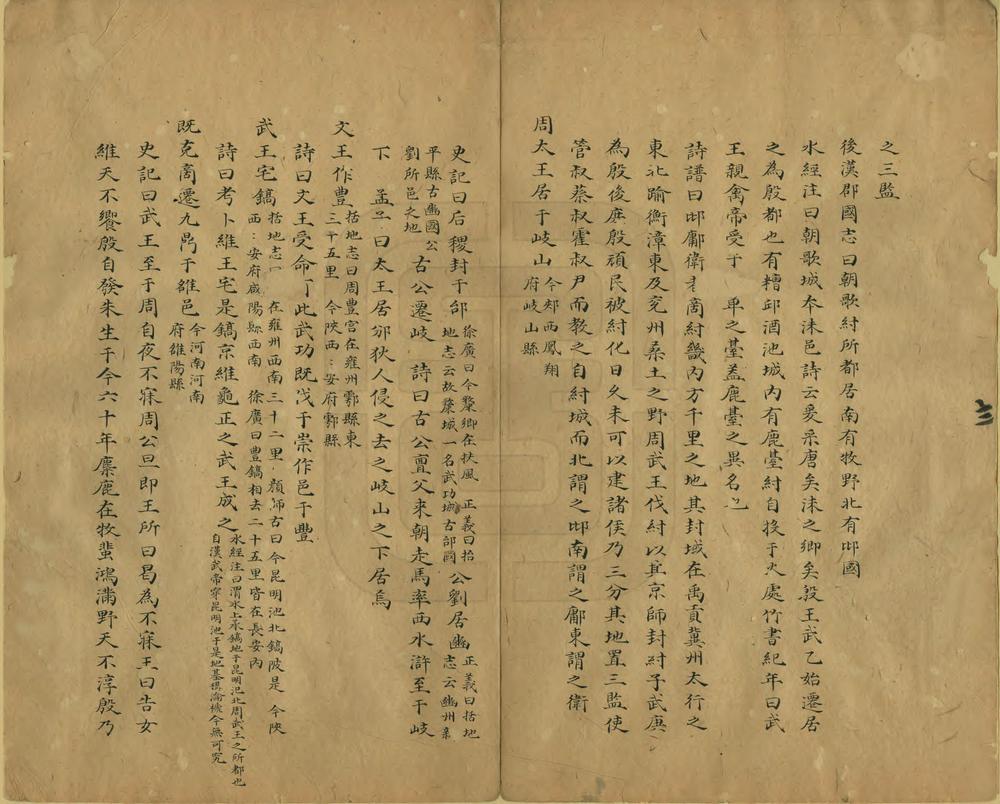 之三監
後漢郡國志曰朝歌紂所都居南有牧野北有邶國
水經注曰朝歌城本沬邑詩云爰采唐矣沬之鄉矣殷王武乙始遷居
之為殷都也有糟邱酒池城內有鹿臺紂自投于火處竹書紀年曰武
王親禽帝受于 單之臺蓋鹿臺之異名也
詩譜曰邶鄘衛者商紂畿內方千里之地其封域在禹貢冀州太行之
東北踰衡漳東及兗州桑土之野周武王伐紂以其京師封紂子武庚
為殷後庶殷頑民被紂化日久未可以建諸侯乃三分其地置三監使
管叔蔡叔霍叔尹而教之自紂城而北謂之邶南謂之鄘東謂之衛
周太王居于岐山今郊西鳳翔
府岐山縣
史記曰后稷封于邰徐廣曰今斄鄉在扶風 正義曰括
地志云故斄城一名武功城古邰國
公劉居豳正義曰括地
志云豳州新
平縣古豳國公
劉所邑之地
古公遷岐 詩曰古公亶父來朝走馬率西水滸至于岐
下 孟子曰太王居邠狄人侵之去之岐山之下居焉
文王作豊括地志曰周豊宮在雍州鄠縣東
三十五里 今陝西西安府鄠縣
詩曰文王受命丁此武功既伐于崇作邑于豐
武王宅鎬括地志 在雍州西南三十二里 顏師古曰今昆明池北鎬陂是 今陝
西西安府咸陽縣西南 徐廣曰豐鎬相去二十五里皆在長安內
詩曰考卜維王宅是鎬京維龜正之武王成之水經注曰渭水上承鎬地于昆明池北周武王之所都也
自漢武帝穿昆明池于是地基搆淪褫今無可究
既克商遷九鼎于雒邑今河南河南
府雒陽縣
史記曰武王至于周自夜不寐周公旦即王所曰曷為不寐王曰告女
維天不饗殷自發未生于今六十年麋鹿在牧蜚鴻滿野天不淳殷乃